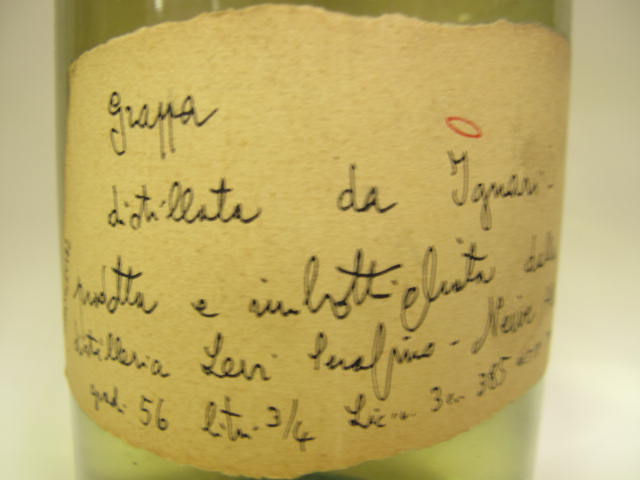 Grappa
distillata da Ignari-
prodotta e imbottigliata dalla
distilleria Levi Serafino - Neive
gradi 56 litri 3/4 Lic. 385